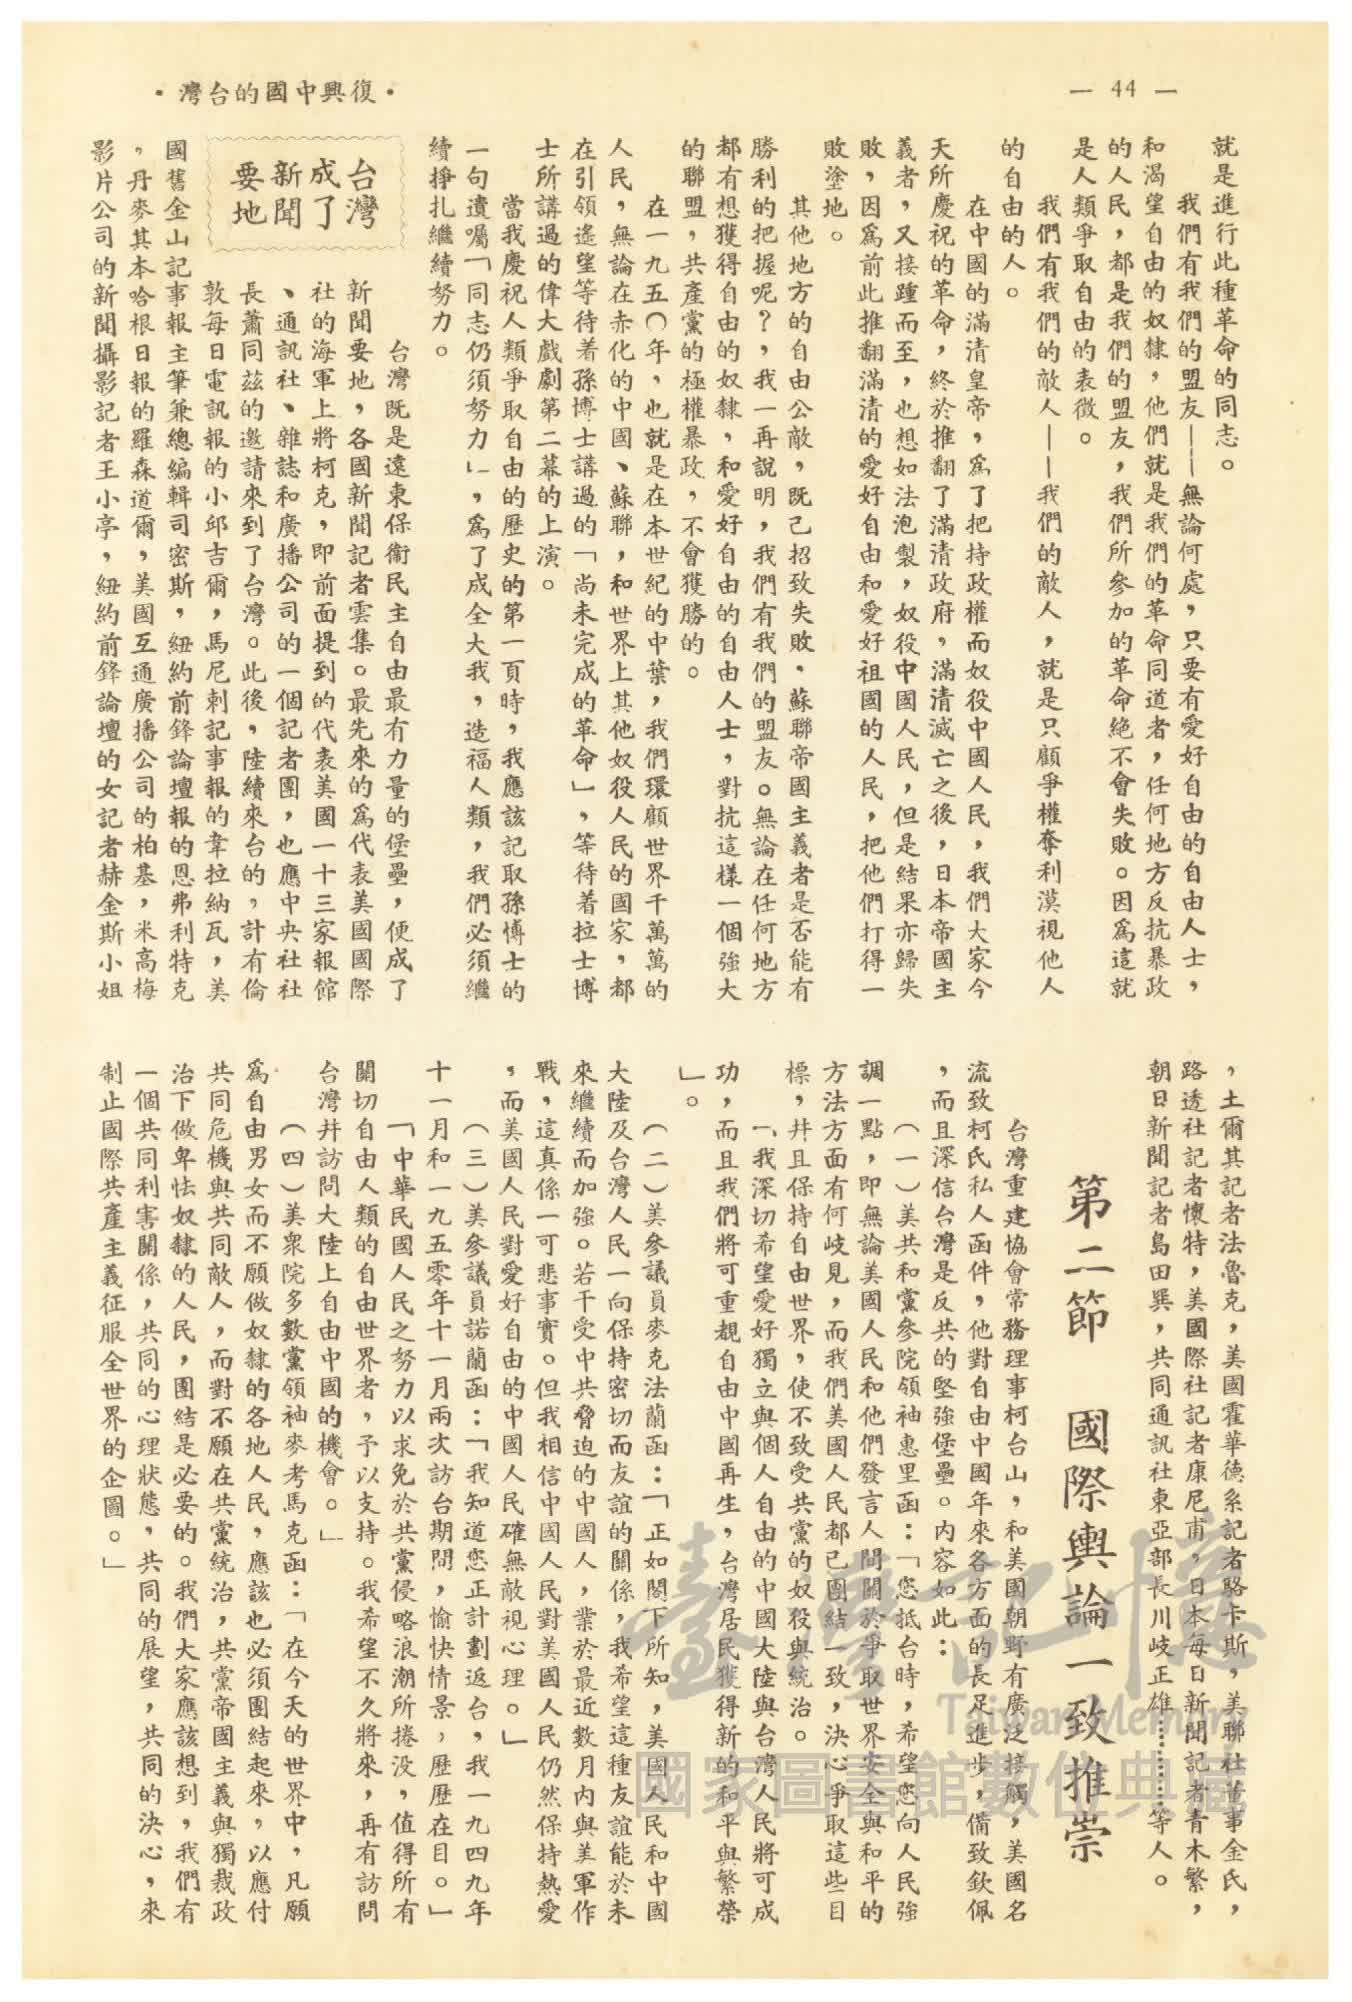 — 44 —
•復興中國的台灣•
就是進行此種革命的同志。
我們有我們的盟友——無論何處，只要有愛好自由的自由人士，
和渴望自由的奴隸，他們就是我們的革命同道者，任何地方反抗暴政
的人民，都是我們的盟友，我們所參加的革命絕不會失敗。因爲這就
是人類爭取自由的表徵。
我們有我們的敵人——我們的敵人，就是只顧爭權奪利漠視他人
的自由的人。
在中國的滿清皇帝，爲了把持政權而奴役中國人民，我們大家今
天所慶祝的革命，終於推翻了滿清政府，滿清滅亡之後，日本帝國主
義者，又接踵而至，也想如法泡製，奴役中國人民，但是結果亦歸失
敗，因爲前此推翻滿清的愛好自由和愛好祖國的人民，把他們打得一
敗塗地。
其他地方的自由公敵，旣已招致失敗，蘇聯帝國主義者是否能有
勝利的把握呢？，我一再說明，我們有我們的盟友。無論在任何地方
都有想獲得自由的奴隸，和愛好自由的自由人士，對抗這樣一個強大
的聯盟，共產黨的極權暴政，不會獲勝的。
在一九五〇年，也就是在本世紀的中葉，我們環顧世界千萬萬的
人民，無論在赤化的中國、蘇聯，和世界上其他奴役人民的國家，都
在引領遙望等待着孫博士講過的「尚未完成的革命」，等待着拉士博
士所講過的偉大戲劇第二幕的上演。
當我慶祝人類爭取自由的歷史的第一頁時，我應該記取孫博士的
一句遺囑「同志仍須努力」，爲了成全大我，造福人類，我們必須繼
續掙扎繼續努力。
台灣
成了
新聞
要地
台灣旣是遠東保衞民主自由最有力量的堡壘，便成了
新聞要地，各國新聞記者雲集。最先來的爲代表美國國際
社的海軍上將柯克，卽前面提到的代表美國一十三家報館
、通訊社、雜誌和廣播公司的一個記者團，也應中央社社
長蕭同茲的邀請來到了台灣。此後，陸續來台的，計有倫
敦每日電訊報的小邱吉爾，馬尼剌記事報的韋拉納瓦，美
國舊金山記事報主筆兼總編輯司密斯，紐約前鋒論壇報的恩弗利特克
，丹麥其本哈根日報的羅森道爾，美國互通廣播公司的柏基，米高梅
影片公司的新聞攝影記者王小亭，紐約前鋒論壇的女記者赫金斯小姐
，土爾其記者法魯克，美國霍華德系記者駱卡斯，美聯社董事金氏，
路透社記者懷特，美國際社記者康尼甫，日本每日新聞記者青木繁，
朝日新聞記者島田巽，共同通訊社東亞部長川岐正雄…………等人。
第二節　國際輿論一致推崇
台灣重建協會常務理事柯台山，和美國朝野有廣泛接觸，美國名
流致柯氏私人函件，他對自由中國年來各方面的長足進步，備致欽佩
，而且深信台灣是反共的堅強堡壘。內容如此：
（一）美共和黨參院領袖惠里函：「您抵台時，希望您向人民強
調一點，卽無論美國人民和他們發言人間關於爭取世界安全與和平的
方法方面有何歧見，而我們美國人民都已團結一致，決心爭取這些目
標，幷且保持自由世界，使不致受共黨的奴役與統治。
「我深切希望愛好獨立與個人自由的中國大陸與台灣人民將可成
功，而且我們將可重覩自由中國再生，台灣居民獲得新的和平與繁榮
」。
（二）美參議員麥克法蘭函：「正如閣下所知，美國人民和中國
大陸及台灣人民一向保持密切而友誼的關係，我希望這種友誼能於未
來繼續而加強。若干受中共脅迫的中國人，業於最近數月內與美軍作
戰，這真係一可悲事實。但我相信中國人民對美國人民仍然保持熱愛
，而美國人民對愛好自由的中國人民確無敵視心理。」
（三）美參議員諾蘭函：「我知道您正計劃返台，我一九四九年
十一月和一九五零年十一月兩次訪台期間，愉快情景，歷歷在目。」
「中華民國人民之努力以求免於共黨侵略浪潮所捲没，值得所有
關切自由人類的自由世界者，予以支持。我希望不久將來，再有訪問
台灣幷訪問大陸上自由中國的機會。」
（四）美衆院多數黨領袖麥考馬克函：「在今天的世界中，凡願
爲自由男女而不願做奴隸的各地人民，應該也必須團結起來，以應付
共同危機與共同敵人，而對不願在共黨統治，共黨帝國主義與獨裁政
治下做卑怯奴隸的人民，團結是必要的。我們大家應該想到，我們有
一個共同利害關係，共同的心理狀態，共同的展望，共同的決心，來
制止國際共產主義征服全世界的企圖。」
臺灣記憶
Taiwan Memory
國家圖書館數位典藏